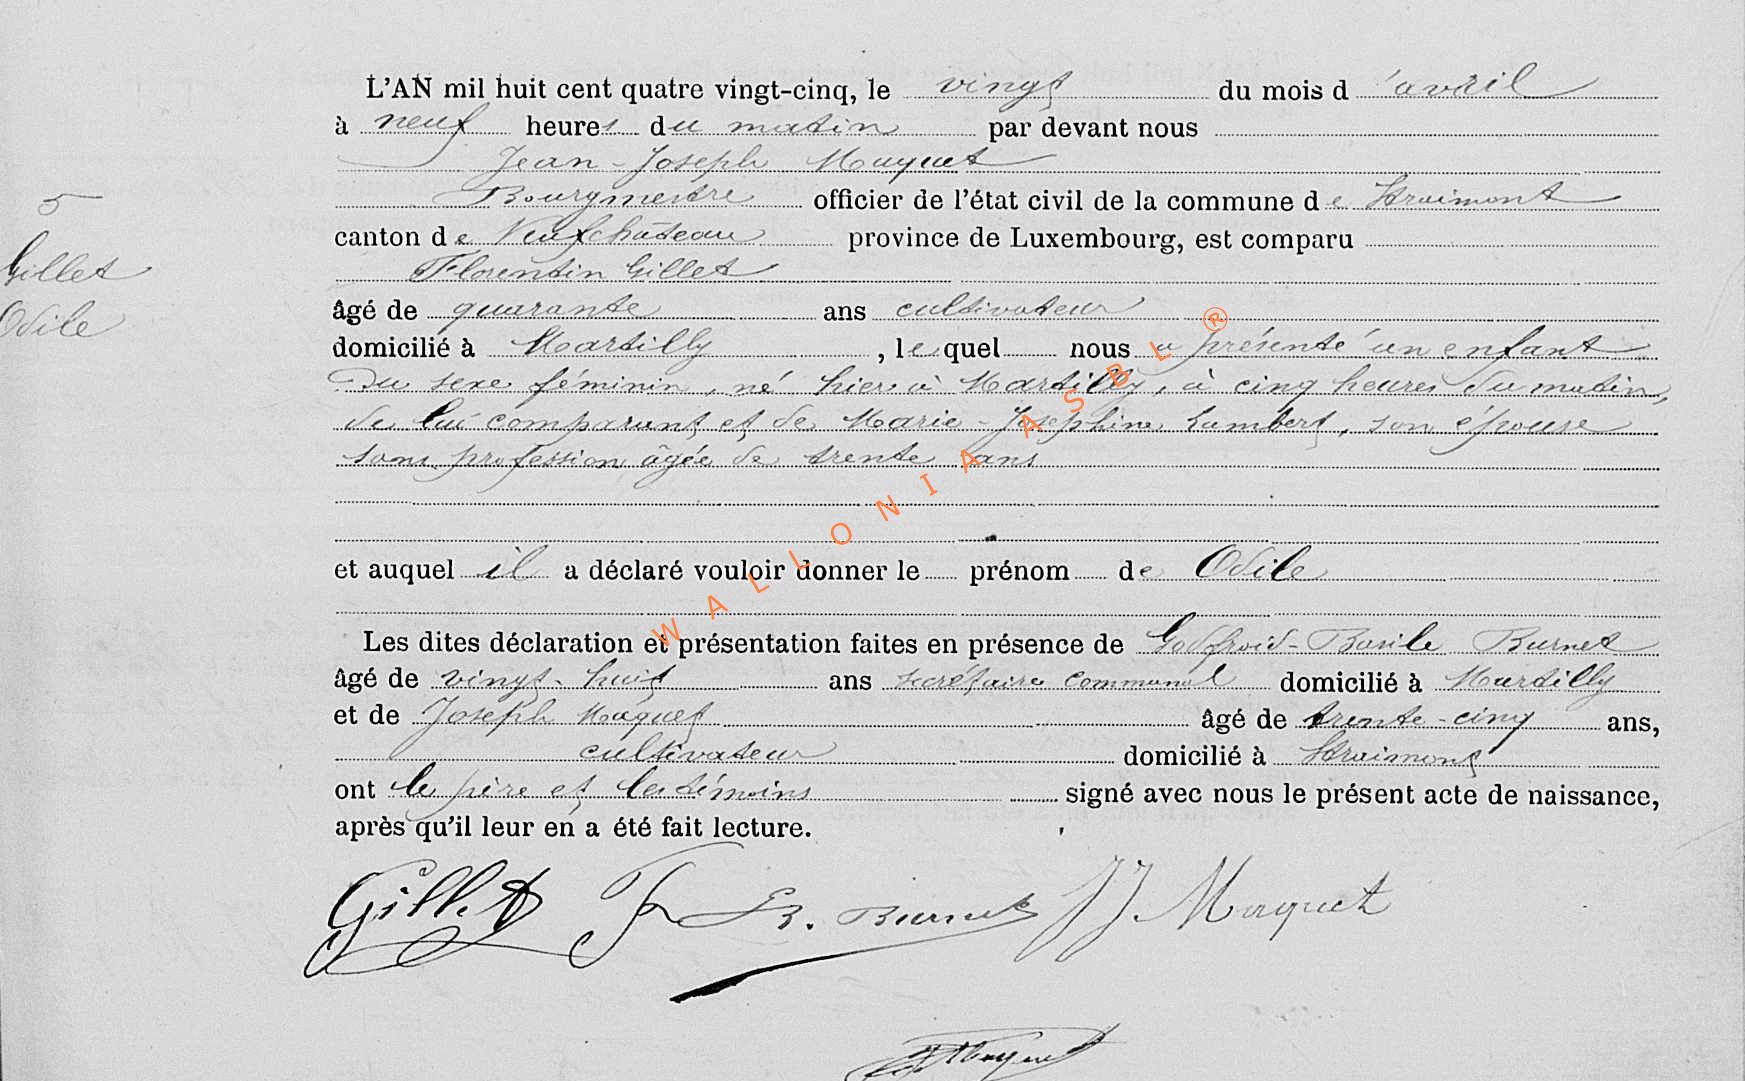 L'AN mil huit cent quatre vingt-cinq, le vingt du mois d'avril
à neuf heures du matin par devant nous
Jean-Joseph Maquet
Bourgmestre officier de l'état civil de la commune de Straimont
canton de Neufchâteau province de Luxembourg, est comparu
Florentin Gillet
âgé de quarante ans cultivateur
domicilié à Martilly, lequel nous a présenté un enfant
du sexe féminin, né hier à Martilly, à cinq heures du matin,
de lui comparant et de Marie-Joséphine Lambert, son épouse
sans profession âgée de trente ans
et auquel il a déclaré vouloir donner le prénom de Odile
Les dites déclaration et présentation faites en présence de Godfroid-Basile Burnet
âgé de vingt-huit ans secrétaire communal domicilié à Martilly
et de Joseph Maquet âgé de trente-cinq ans,
cultivateur domicilié à Straimont
ont le père et les témoins signé avec nous le présent acte de naissance,
après qu'il leur en a été fait lecture.
5
Gillet
Odile
Gillet F B. Burnet JJ Maquet
Maquet
WALLONIA ASBL ®